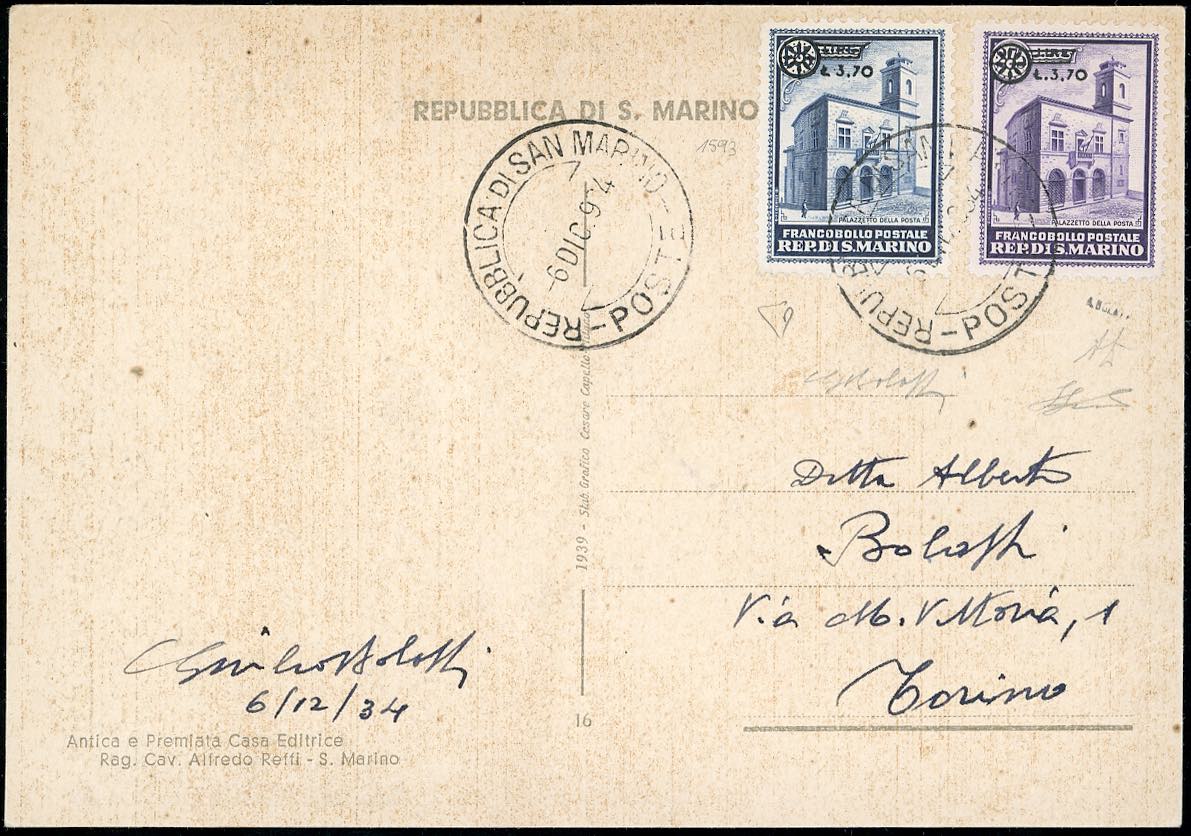 REPUBBLICA DI S. MARINO
1593
REPUBBLICA DI SAN MARINO - POSTE
6 DIC. 934
L. 3,70
PALAZZETTO DELLA POSTA
FRANCOBOLLO POSTALE
REP. DI S. MARINO
L. 3,70
PALAZZETTO DELLA POSTA
FRANCOBOLLO POSTALE
REP. DI S. MARINO
REPU - POST
1939 - Stab. Grafico Cesare Capello
Ditta Alberto
Bolaffi
Via M. Vittoria, 1
Torino
Giulio Bolaffi
6/12/34
16
Antica e Premiata Casa Editrice
Rag. Cav. Alfredo Reffi - S. Marino